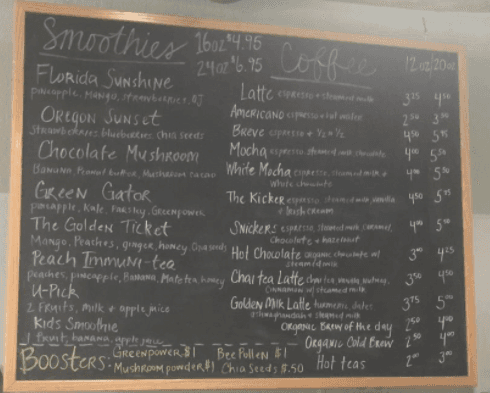 Smoothies 16oz $4.95
24oz $6.95
Florida Sunshine
pineapple, Mango, strawberries, OJ
Oregon Sunset
Strawberries blueberries chia seeds
Chocolate Mushroom
Banana, Peanut butter, Mushroom cacao
Green Gator
pineapple, Kale, Parsley, Greenpower
The Golden Ticket
Mango, Peaches, ginger, honey,
Peach Immuni-tea
peaches, pineapple, Banana, Mate tea, honey
U-Pick
2 Fruits, milk + apple juice
Kids Smoothie
1 fruit, banana, apple juice
Boosters: Greenpower $1 Bee Pollen $1
Mushroom powder $1 Chia Seeds $.50
Coffee 12oz/20oz
Latte espresso + steamed milk 4.50
Americano espresso + hot water 2.50
Breve espresso + ½ + ½ 4.50
Mocha espresso, steamed milk, chocolate 5.50
White Mocha espresso, steamed milk + 5.50
White chocolate
The Kicker espresso, steamed milk, vanilla 4.50
+ Irish cream
Snickers espresso, steamed milk, caramel,
Chocolate + hazelnut
Hot Chocolate organic chocolate w/ 4.25
steamed milk
Chai tea Latte chai tea, vanilla, nutmeg, 3.50 4.50
Cinnamon w/ steamed milk
Golden Milk Latte turmeric, dates, 3.75 5.00
ashwagandha + steamed milk
Organic Brew of the day 2.50 4.00
Organic Cold Brew 2.50 4.00
Hot teas 2.00 3.00